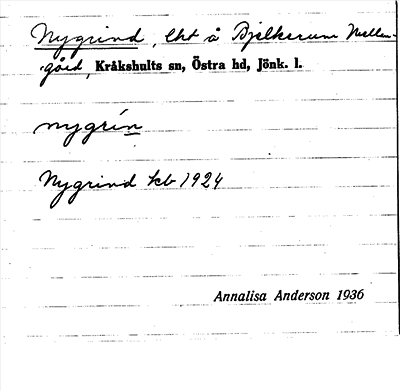 Nygrind, lht å Bjelkerum Mellen-
gård, Kråkshults sn, Östra hd, Jönk. l.
nygrín
Nygrind kb 1924
Annalisa Anderson 1936